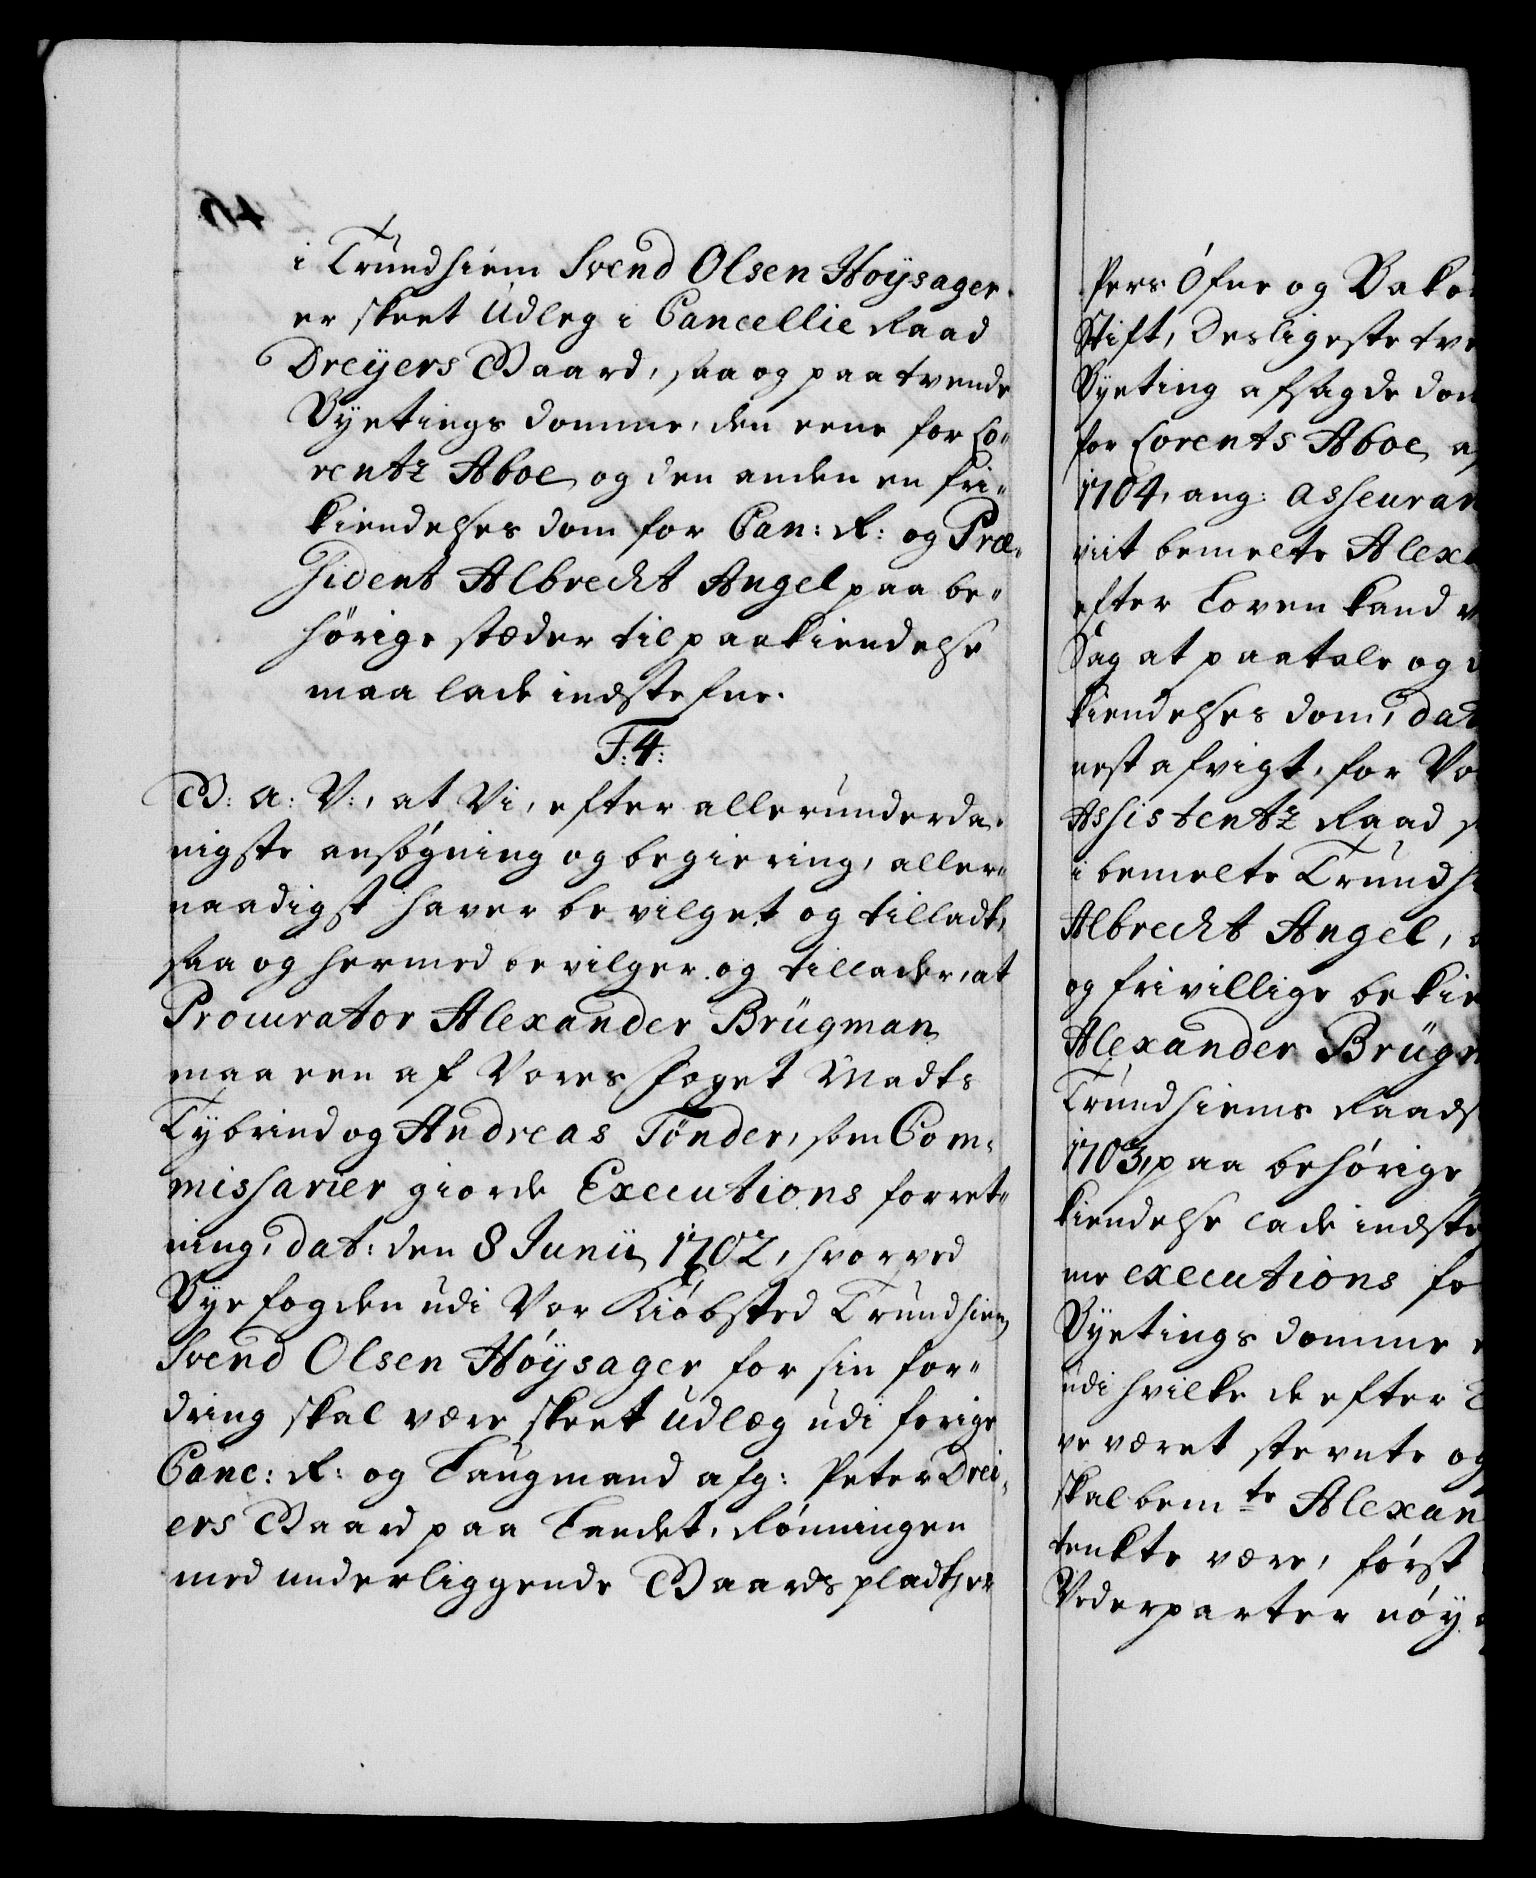 i Trundhiem Svend Olsen Høysager
er skeet Udleg i Cancellie Raad
Dreyers Gaard, saa og paa tvende
Byetings domme, den eene for Lo-
rentz Aboe, og den anden en fri-
kiendelses dom for Can: R: og Præ-
sident Albrecht Angel paa be-
hørige stæder til paakiendelse
maa lade indstefne.
F: 4:
G: A: V:, at Vi, efter allerunderda-
nigste ansøgning og begiering, aller-
naadigst haver bevilget og tilladt,
saa og hermed bevilger og tillader, at
Procurator Alexander Brügman
maa een af Vores foget Madts
Tybrind og Andreas Tønder, som Com-
missarier giorde Executions forret-
ning, dat: den 8 Junii 1702, hvorved
Byefogden udi Vor Kiøbsted Trundhiem
Svend Olsen Høysager for sin for-
dring skal være skeet Udlæg udi forige
Canc: R: og Laugmand afg: Peter Drei-
ers Gaard paa Landet, Rønningen
med underliggende Gaards pladtzer
Pers Øfne og Bakø
Stift, Desligeste tve
Byeting afsagde dom
for Lorents Aboe, af
1704, ang: Asseuran
viit bemelte Alexa
efter Loven kand
Sag at paatale og
kiendelses dom, dat
nest afvigt, for Vo
Assistentz Raad
i bemelte Trundh
Albrecht Angel,
og frivillige bekie
Alexander Brügm
Trundhiems Raads
1703, paa behørige
kiendelse lade indste
me executions fo
Byetings domme
udi hvilke de efter
ve været stevnte og
skal bemte Alexan
tenkte være, først
Vederparter nøy